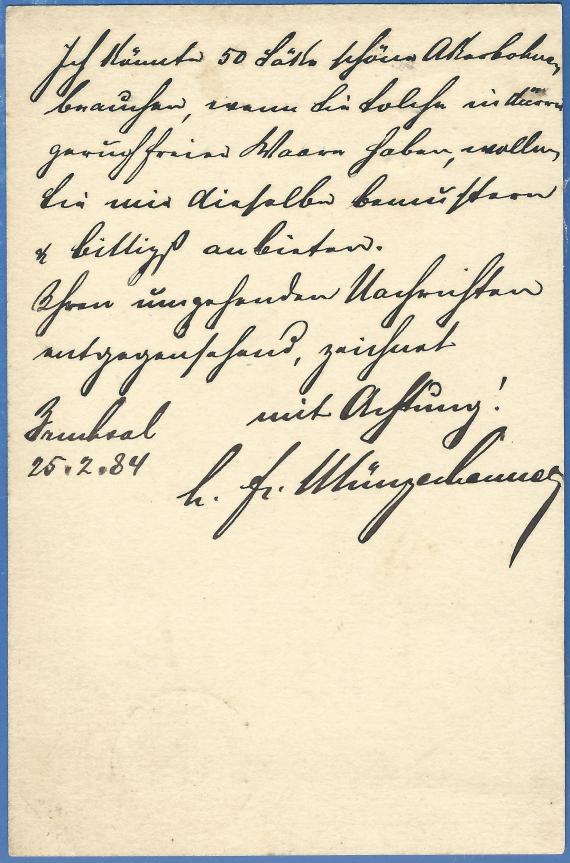 Ich könnte 50 Säke schöne Akerbohnen
brauchen, wenn Sie solche in dürrer
geruchfreier Waare haben, wollen
Sie mir dieselbe bemustern
& billigst anbieten.
Ihren umgehenden Nachrichten
entgegensehend, zeichnet
mit Achtung!
25.2.84